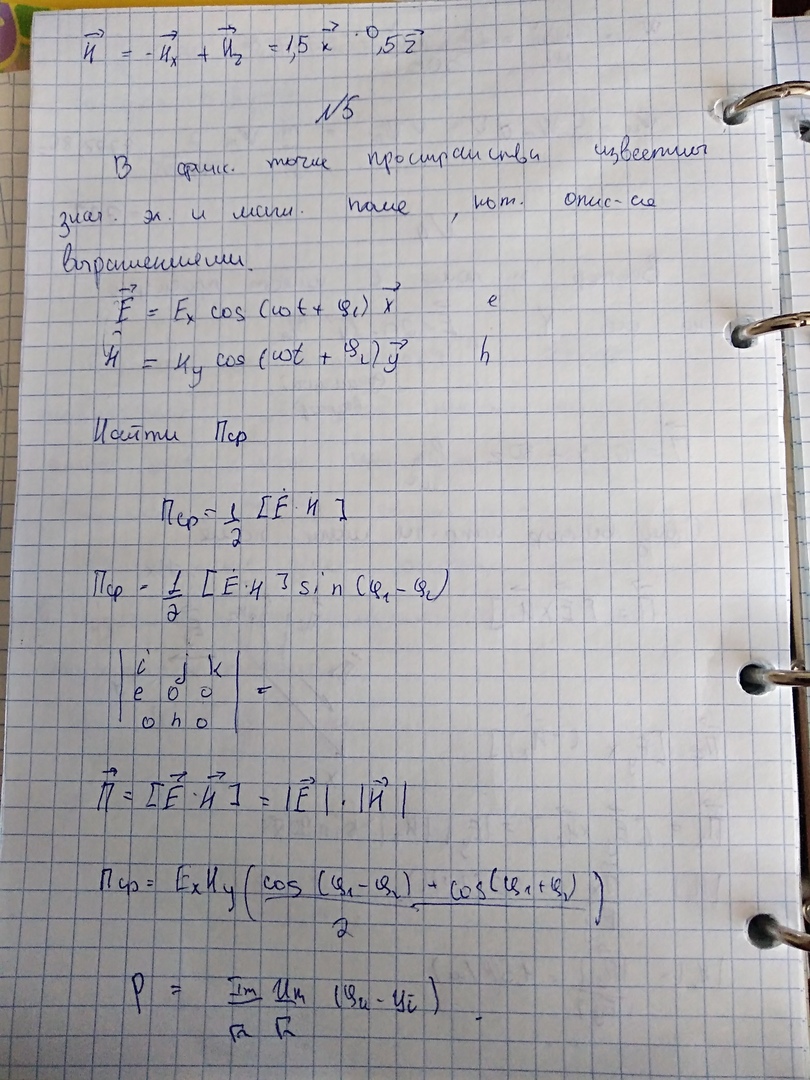 H⃗ = -H⃗x + H⃗z = 1,5 x⃗ · 0,5 z⃗
№5
В фикс. точке пространства известны
знач. эл. и магн. поле, кот. опис-ся
выражениями.
E⃗ = Ex cos (ωt + φ1) x⃗ e
H⃗ = Hy cos (ωt + φ2) y⃗ h
Найти Пср
Пср = 1/2 [Ė · Ḣ]
Пср = 1/2 [Ė · H] sin (φ1 - φ2)
| i j k |
| e 0 0 | =
| 0 h 0 |
П⃗ = [E⃗ · H⃗] = |E⃗| · |H⃗|
Пср = ExHy ( (cos (φ1 - φ2) + cos (φ1 + φ2)) / 2 )
P = Im/√2 Um/√2 (φu - φi).